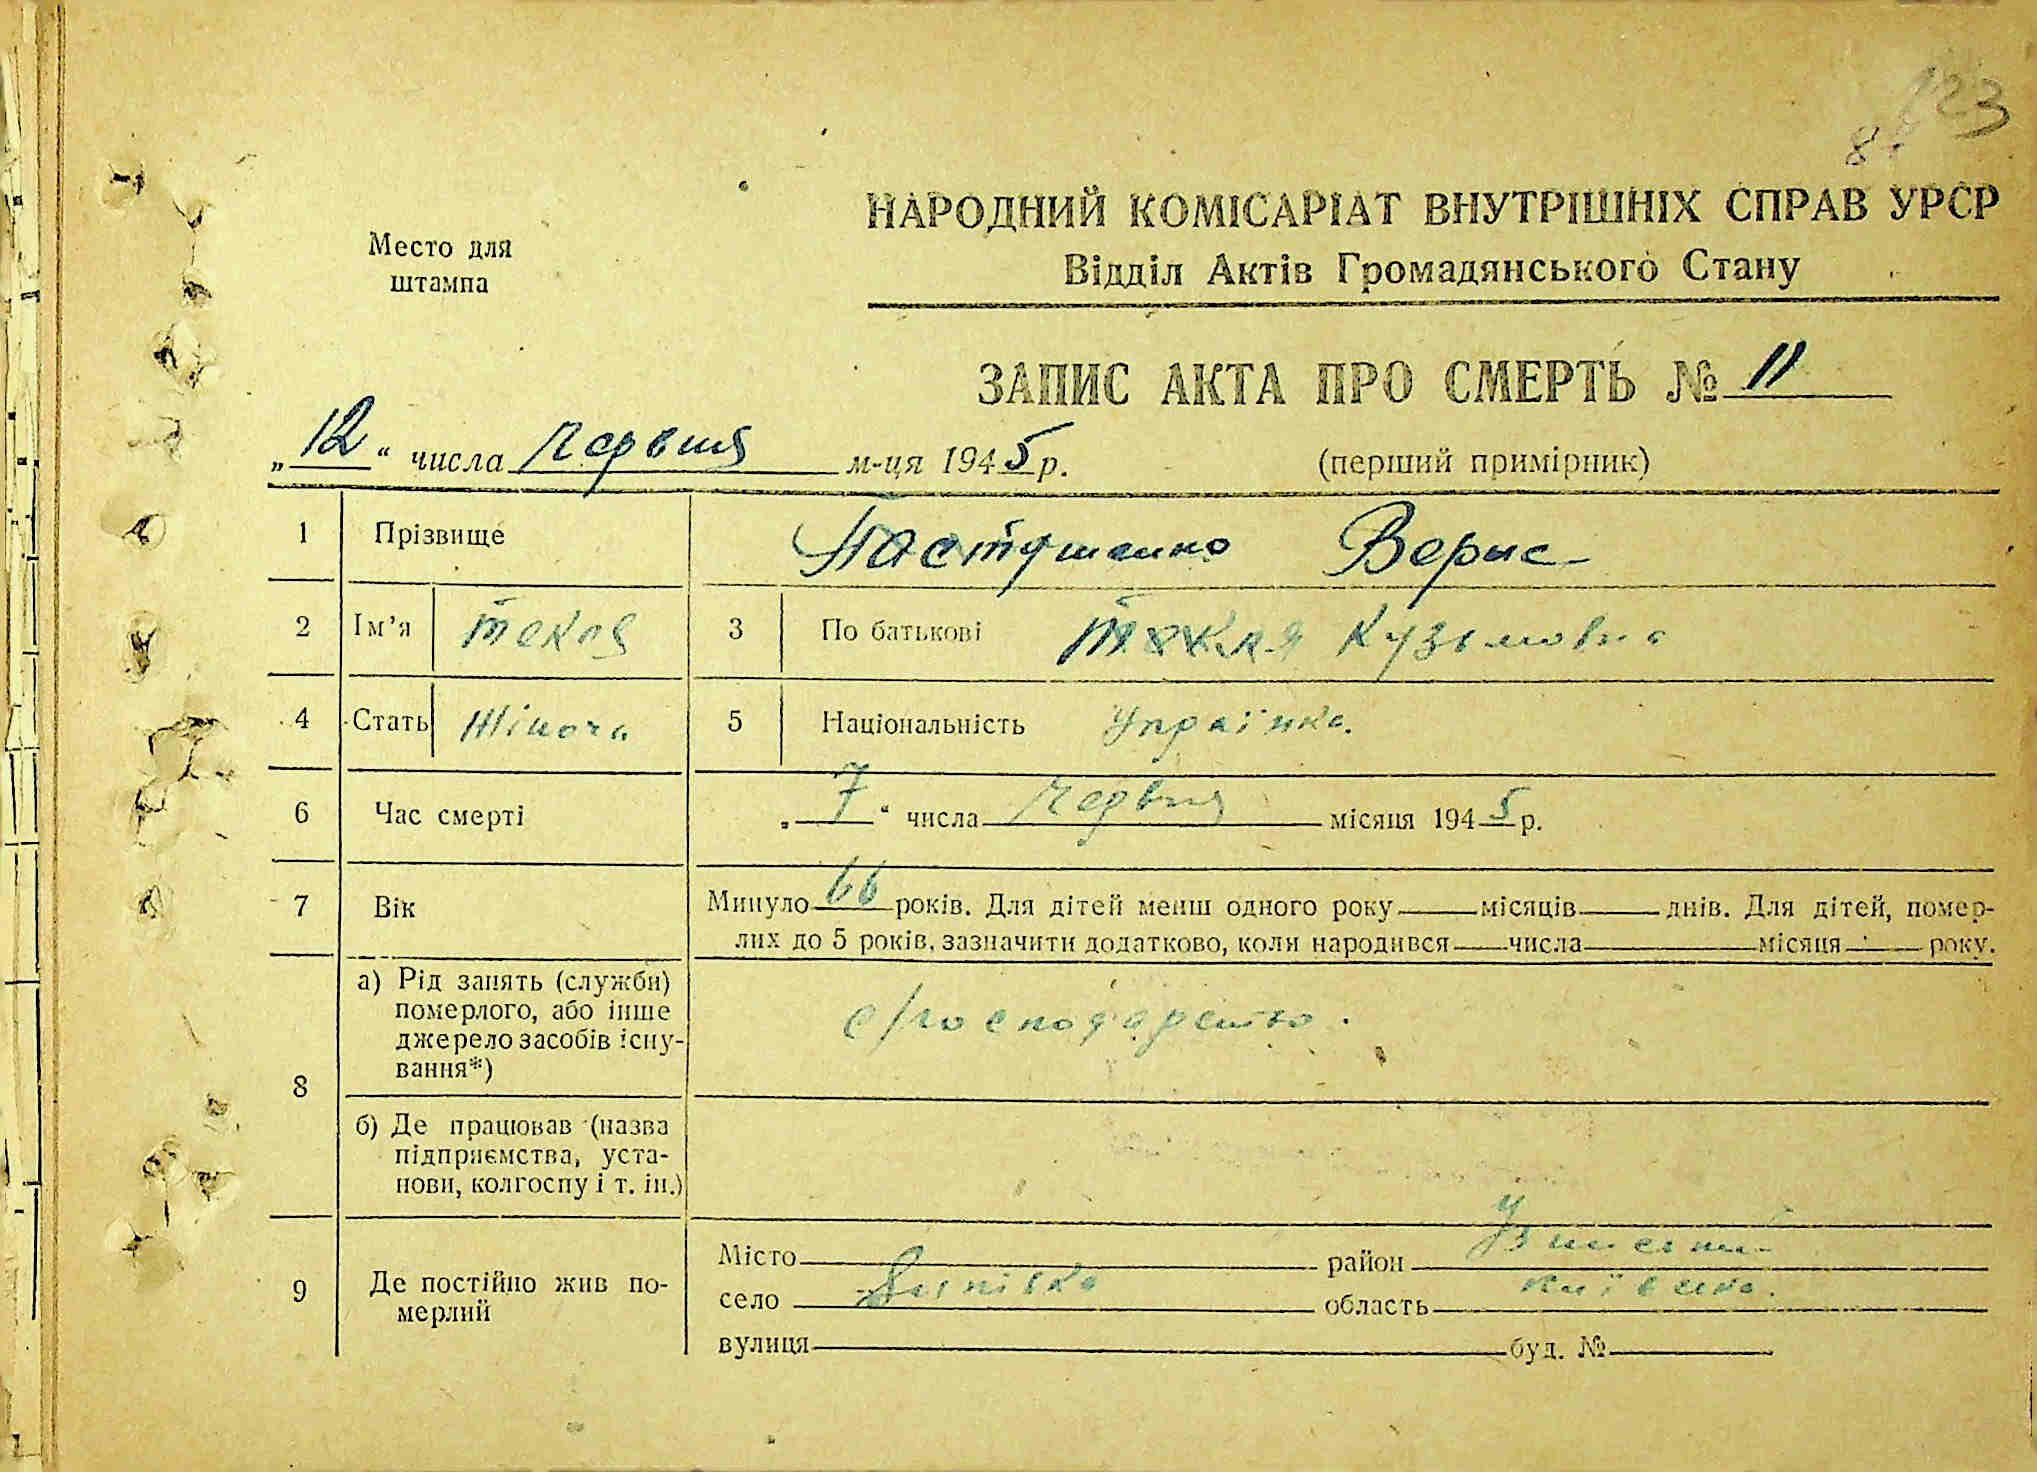 123
8
НАРОДНИЙ КОМІСАРІАТ ВНУТРІШНІХ СПРАВ УРСР
Место для
штампа
Відділ Актів Громадянського Стану
ЗАПИС АКТА ПРО СМЕРТЬ № 11
„12“ числа Червня м-ця 1945 р. (перший примірник)
1 Прізвище Пастушенко Верис
2 Ім’я Текля 3 По батькові Текля Кузьмовна
4 Стать Жіноча 5 Національність Українка.
6 Час смерті „7“ числа Червня місяця 1945 р.
7 Вік Минуло 66 років. Для дітей менш одного року місяців днів. Для дітей, помер-
лих до 5 років, зазначити додатково, коли народився числа місяця року.
8 а) Рід занять (служби)
померлого, або інше
джерело засобів існу-
вання*)
с/господарство.
б) Де працював (назва
підприємства, уста-
нови, колгоспу і т. ін.)
9 Де постійно жив по-
мерлий
Місто район
село область Київська.
вулиця буд. №